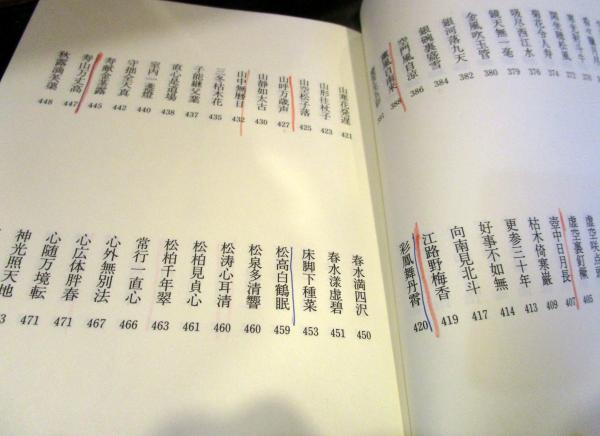 菊花令人寿 374
吸尽西江水 376
鏡天無一毫 379
金風吹玉管 380
銀河落九天 382
銀碗裏盛雪 384
空門風自涼 386
薫風自南来 388
391
虚空咲点頭 405
虚空裏釘橛 407
壺中日月長 409
枯木倚寒巌 413
更参三十年 414
好事不如無 417
向南見北斗 419
江路野梅香 420
彩鳳舞丹霄
山寒花発遅 421
山形拄杖子 423
山空松子落 425
山呼万歳声 427
山静如太古 430
山中無暦日 432
三冬枯木花 435
子能継父業 437
直心是道場 438
室内一盞燈 440
守拙全天真 442
寿献金茎露 445
寿山万丈高 447
秋露滴芙蕖 448
春水満四沢 450
春水漾虚碧 451
床脚下種菜 453
松高白鶴眠 459
松泉多清響 460
松涛心耳清 460
松柏見貞心 461
松柏千年翠 463
常行一直心 466
心外無別法 467
心広体胖春 471
心随万境転 471
神光照天地